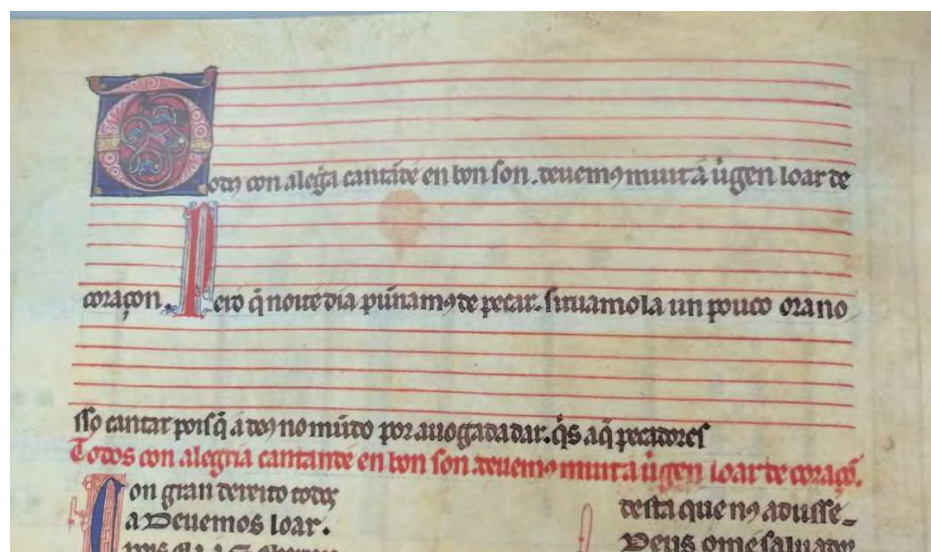 Todꝯ con aleg̃a cantãdé en bon son. deuemꝯ muit á uĩgen loar de
coraçon. Pero q̃ noit é dia punamꝯ de pecar. siruamola un pouco ora no
sso cantar pois q̃ a dꝯ no mũdo por auogada dar. q̃s aꝯ pecadores
Todos con alegria cantandé en bon son deuemꝯ muit a uĩgen loar de coraçõ.
Con gran dereito todꝯ
a Deuemos loar.
desta que nꝯ adusse-
Deus ome saluador